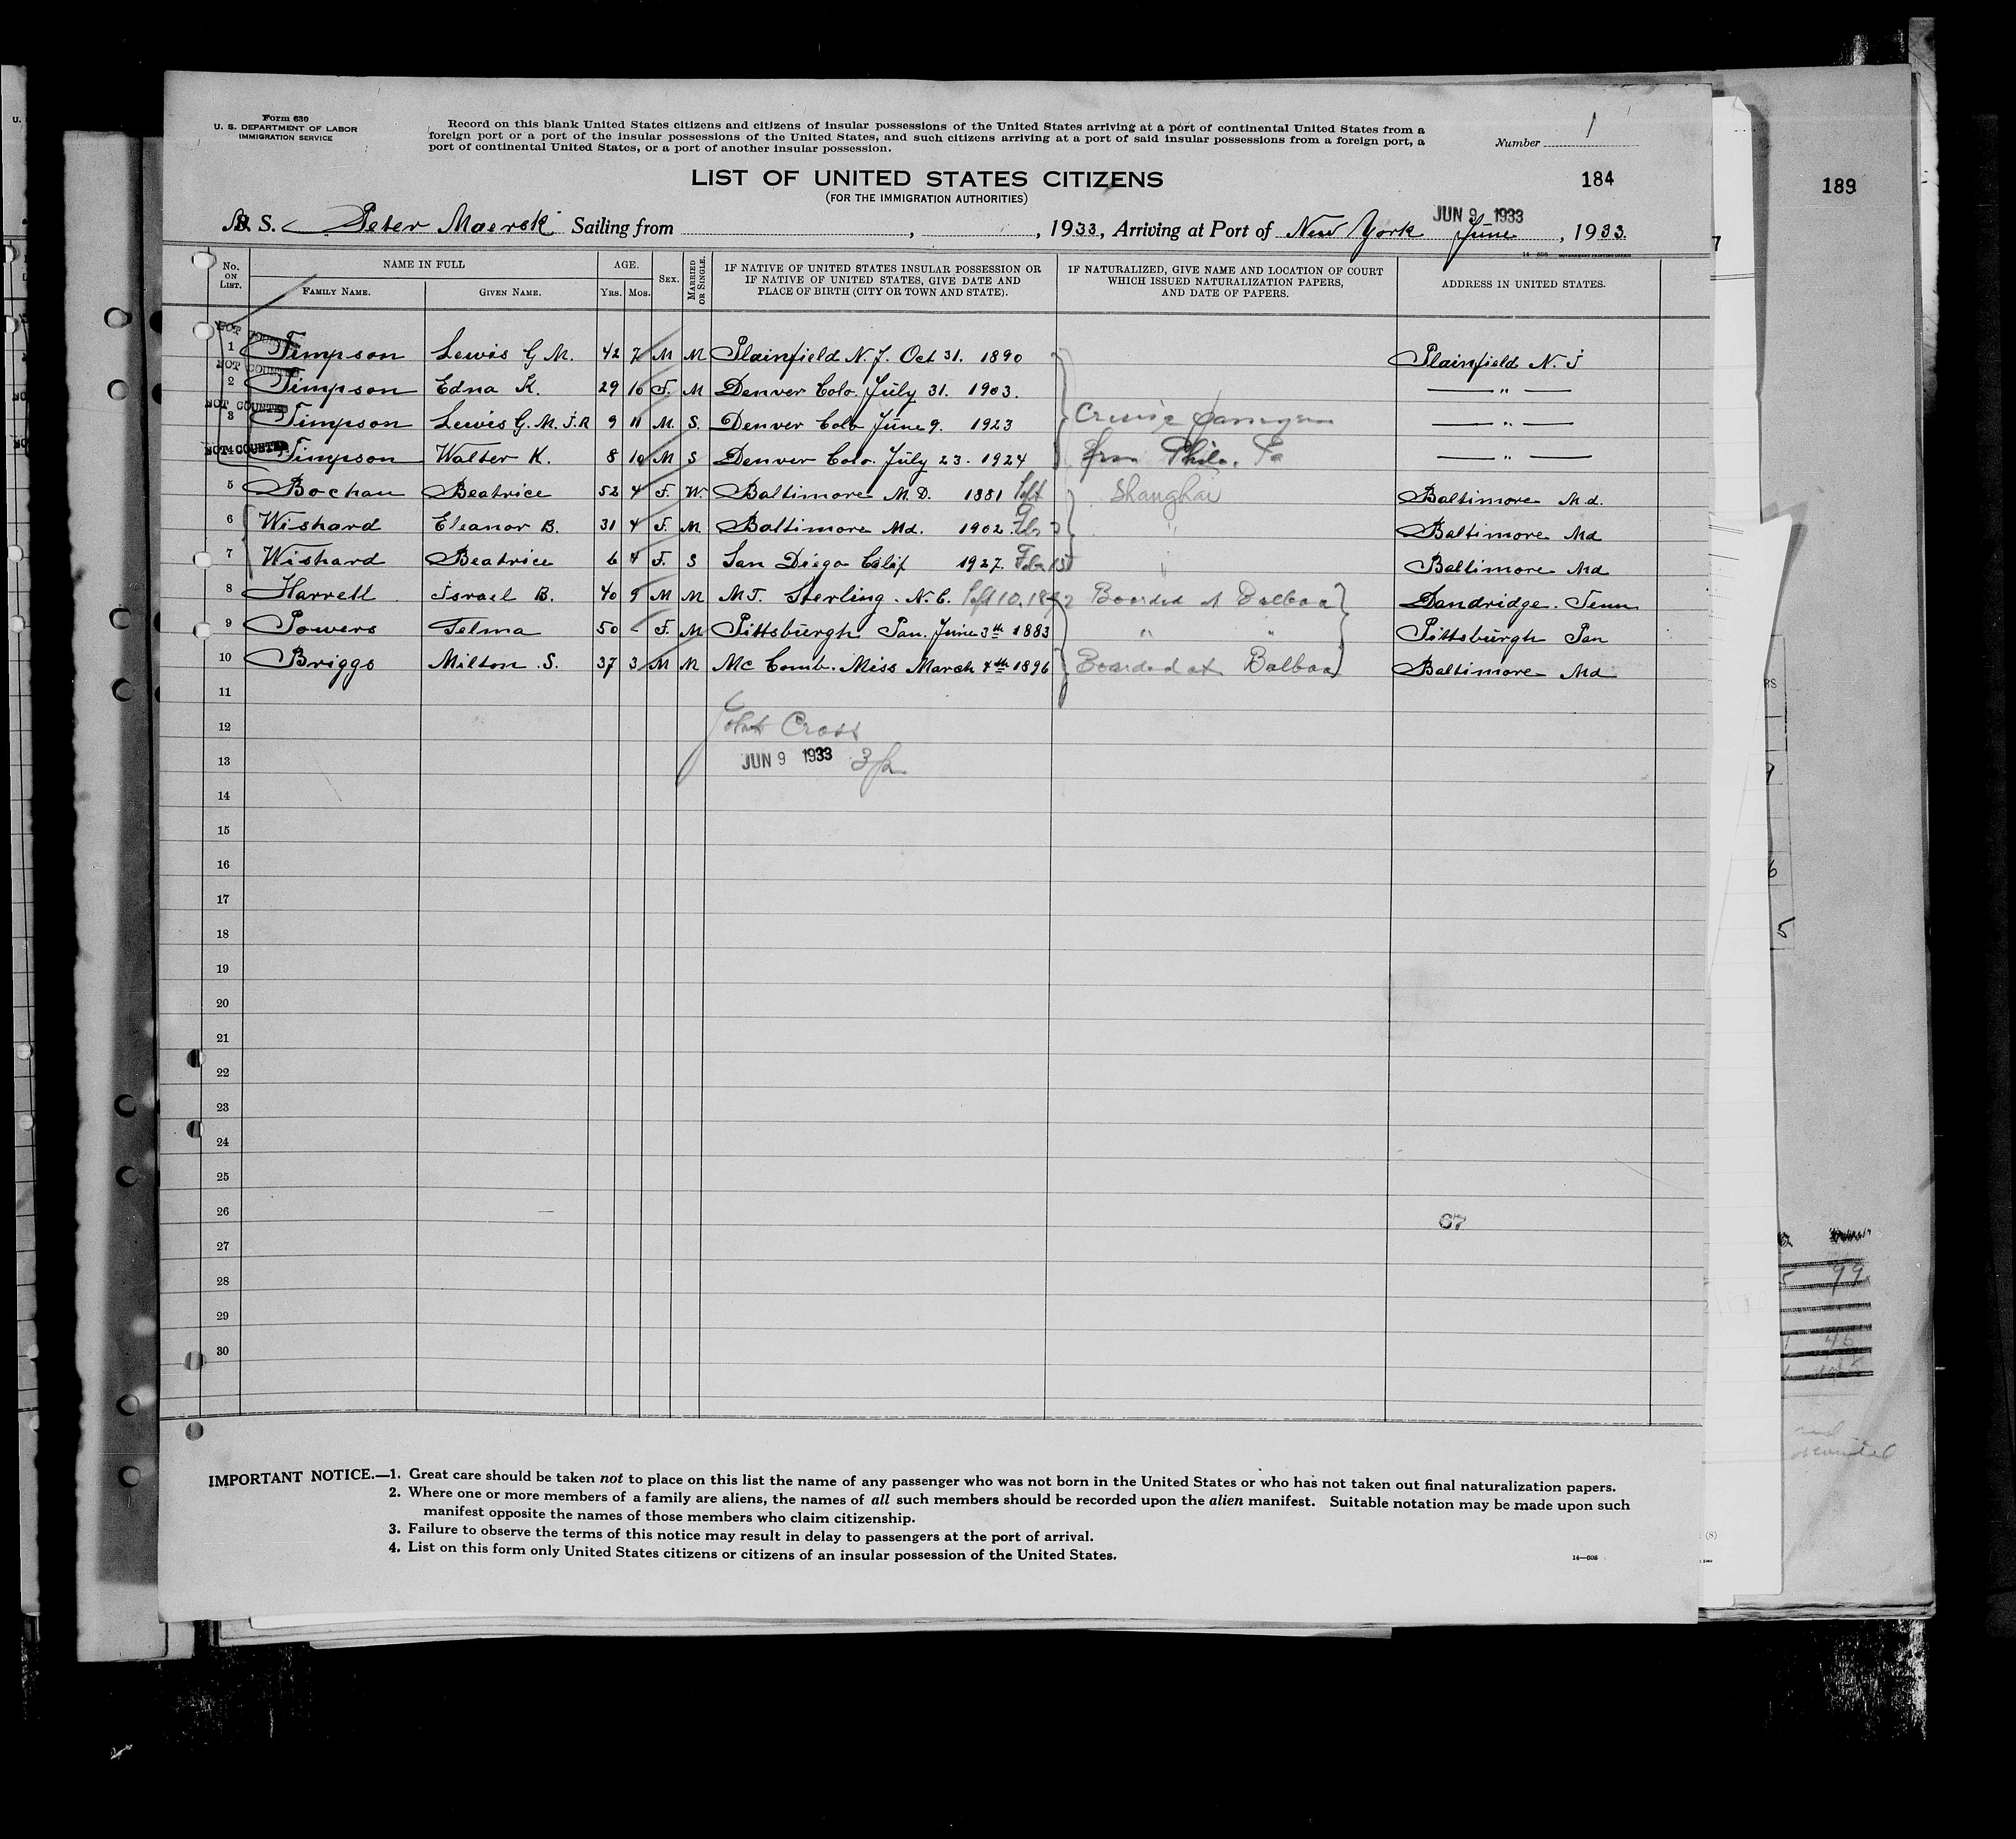 Form 630
U. S. DEPARTMENT OF LABOR
IMMIGRATION SERVICE
Record on this blank United States citizens and citizens of insular possessions of the United States arriving at a port of continental United States from a
foreign port or a port of the insular possessions of the United States, and such citizens arriving at a port of said insular possessions from a foreign port, a
port of continental United States, or a port of another insular possession.
Number 1
LIST OF UNITED STATES CITIZENS
(FOR THE IMMIGRATION AUTHORITIES)
184
189
JUN 9 1933
S. Peter Maersk Sailing from , , 1933, Arriving at Port of New York June , 1933.
14—608 GOVERNMENT PRINTING OFFICE
No. on List. NAME IN FULL AGE. Sex. Married or Single. IF NATIVE OF UNITED STATES INSULAR POSSESSION OR IF NATIVE OF UNITED STATES, GIVE DATE AND PLACE OF BIRTH (CITY OR TOWN AND STATE). IF NATURALIZED, GIVE NAME AND LOCATION OF COURT WHICH ISSUED NATURALIZATION PAPERS, AND DATE OF PAPERS. ADDRESS IN UNITED STATES.
Family Name. Given Name. Yrs. Mos.
NOT COUNTED
1 Timpson Lewis G M. 42 7 M M Plainfield N. J. Oct 31. 1890 Plainfield N. J
NOT COUNTED
2 Timpson Edna K. 29 10 F. M Denver Colo. July 31. 1903. — " —
NOT COUNTED
3 Timpson Lewis G. M. J.R 9 11 M. S. Denver Colo June 9. 1923 Cruise — " —
NOT COUNTED
4 Timpson Walter K. 8 10 M S Denver Colo. July 23. 1924 from Phila. Pa — " —
5 Bochau Beatrice 52 4 F. W. Baltimore M. D. 1881 Sept Shanghai Baltimore Md.
6 Wishard Eleanor B. 31 4 F. M. Baltimore Md. 1902. Feb " Baltimore Md
7 Wishard Beatrice 6 4 F. S San Diego Calif 1927. Feb 15 " Baltimore Md
8 Harrell Israel B. 40 9 M M MT. Sterling. N. C. Sept 10, 1892 Boarded at Balboa Dandridge. Tenn
9 Powers Telma 50 - F. M Pittsburgh Pan. June 3th 1883 " " Pittsburgh Pan
10 Briggs Milton S. 37 3 M M Mc Comb. Miss March 4th 1896 Boarded at Balboa Baltimore Md
11
12 Cross
13 JUN 9 1933
14
15
16
17
18
19
20
21
22
23
24
25
26 67
27
28
29
30
IMPORTANT NOTICE.—1. Great care should be taken not to place on this list the name of any passenger who was not born in the United States or who has not taken out final naturalization papers.
2. Where one or more members of a family are aliens, the names of all such members should be recorded upon the alien manifest. Suitable notation may be made upon such
manifest opposite the names of those members who claim citizenship.
3. Failure to observe the terms of this notice may result in delay to passengers at the port of arrival.
4. List on this form only United States citizens or citizens of an insular possession of the United States.
14—608